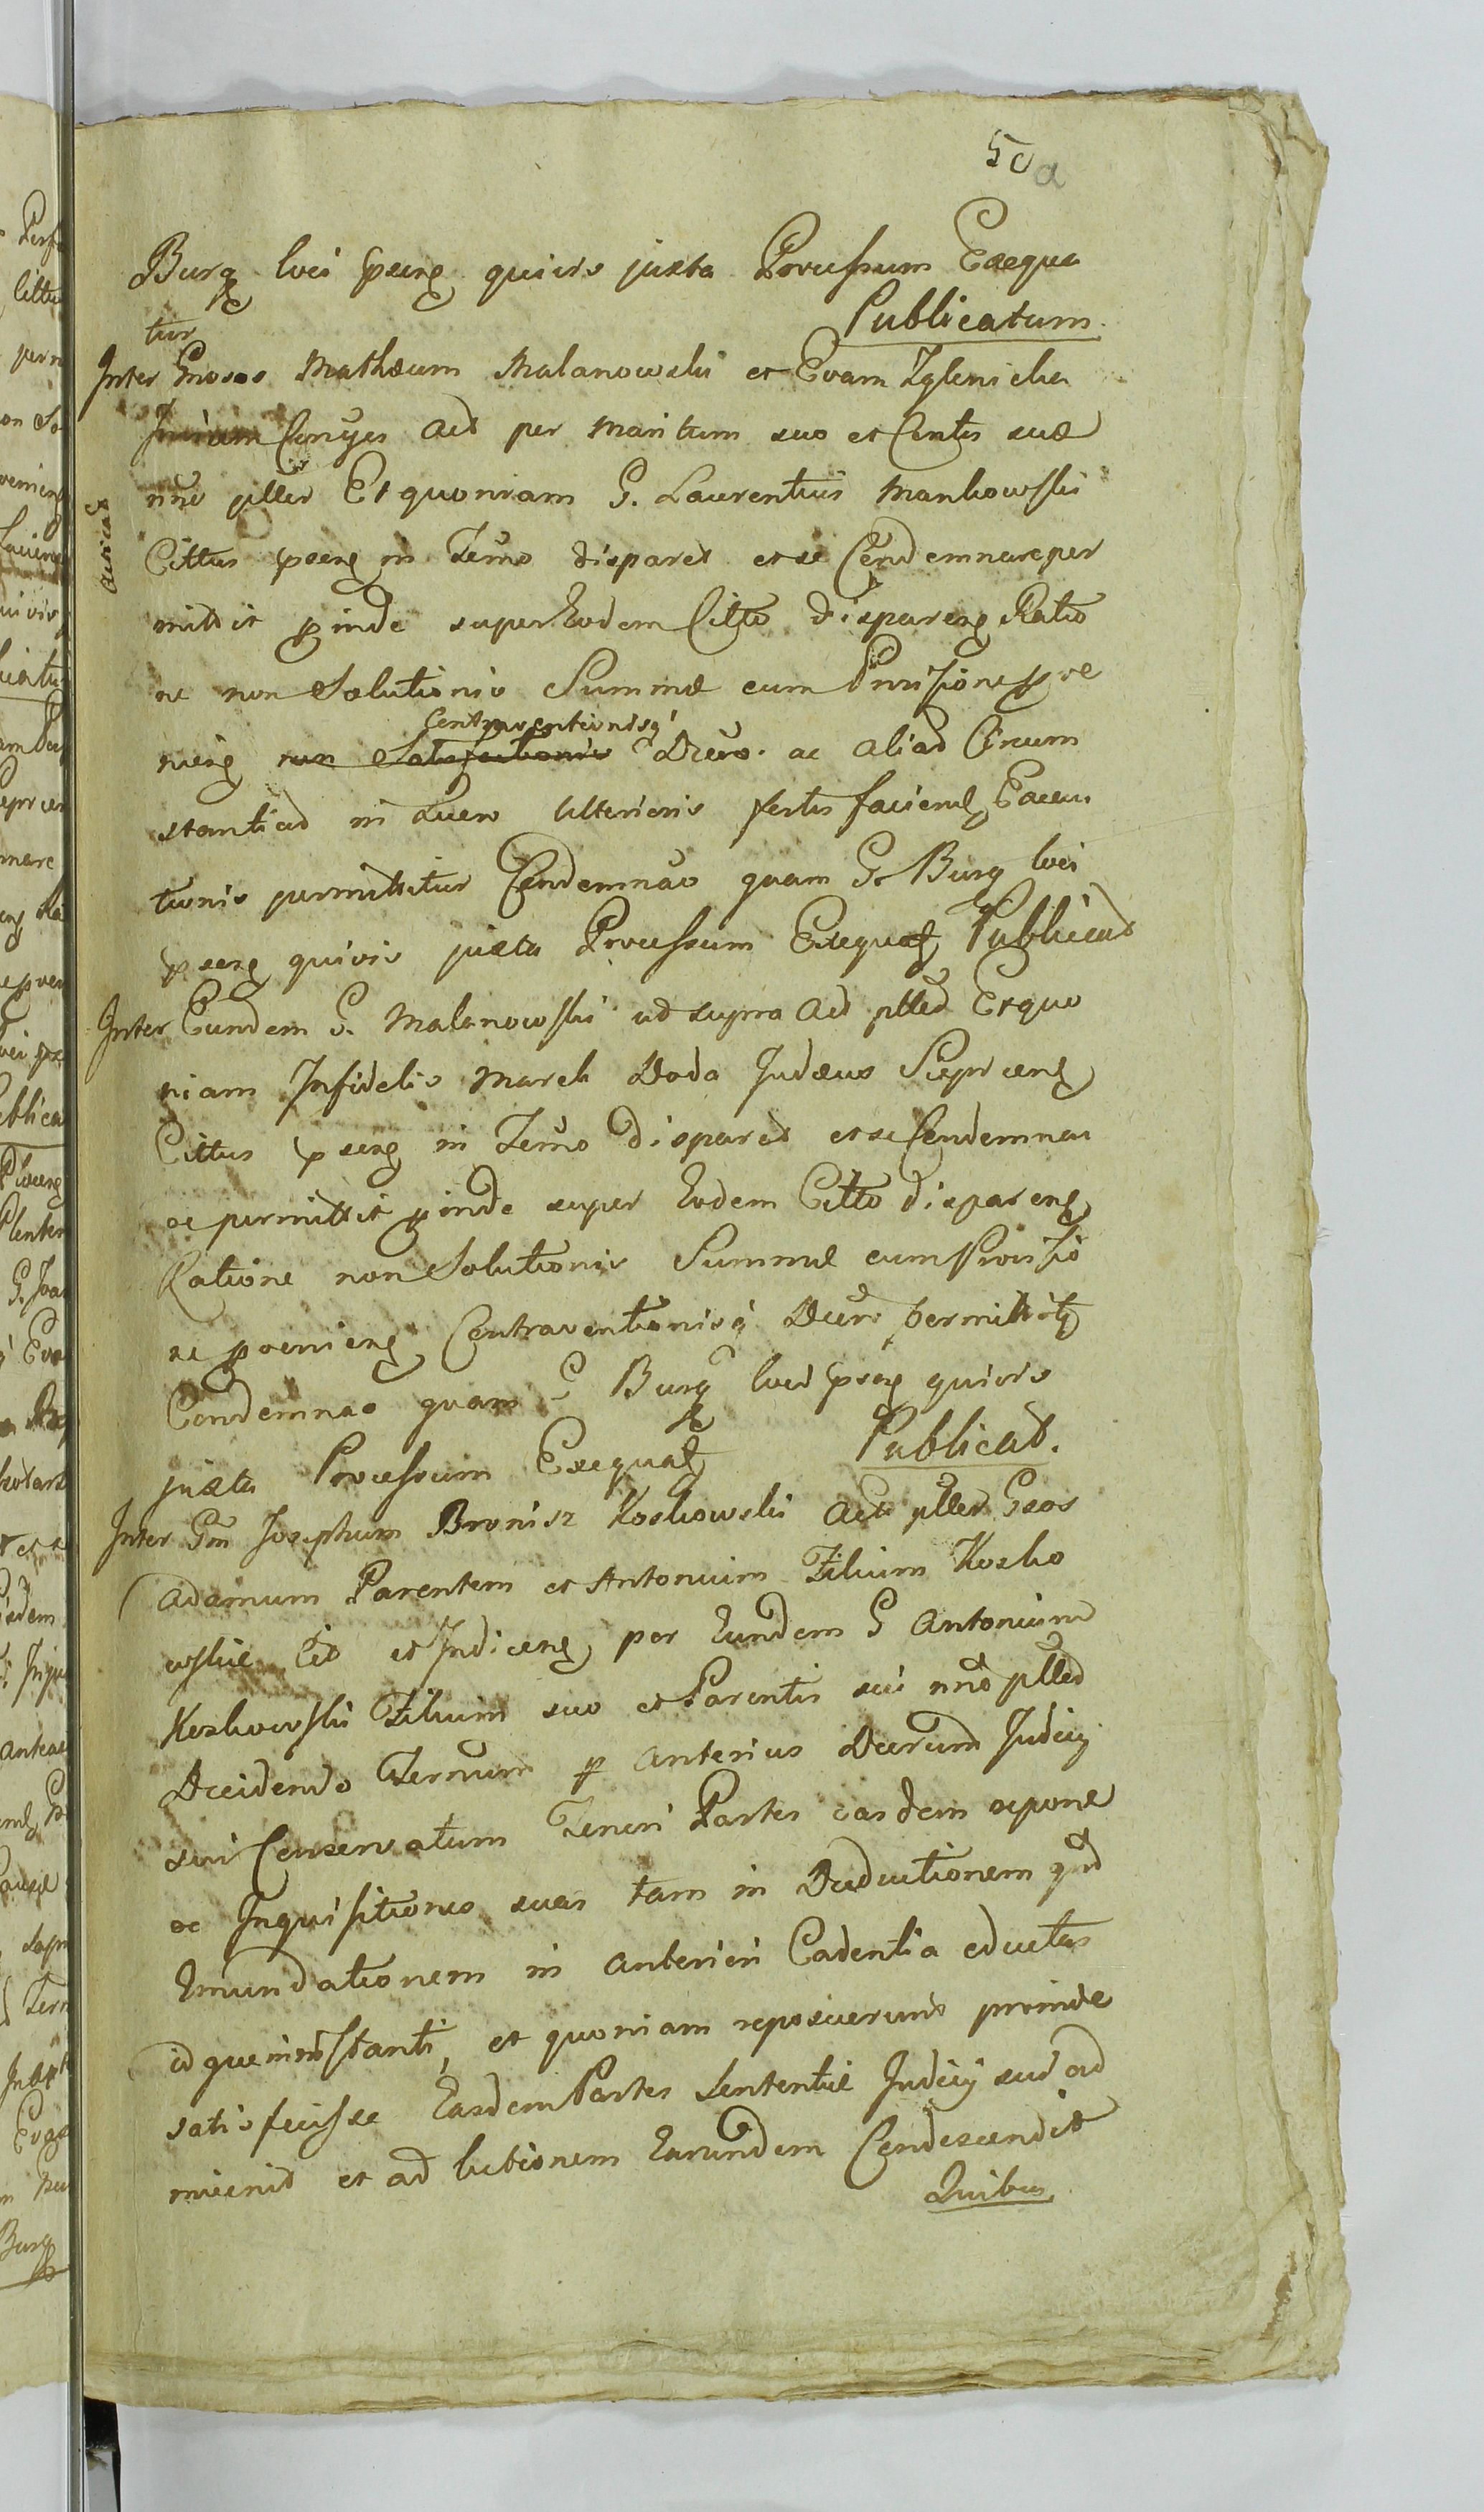 50a
Burg loci psens quivis juxta Processum Exequa
tur Publicatum
Inter Gnosos Mathæum Malanowski et Evam Zglenicka
Conjges Act per Maritum suo et Contis suæ
nne plles Et quoniam G. Laurentius Mankowski
Cittus psens in Termo disparet et se Condemnare per
mittit pinde super Eodem Citto disparens Ratio
ne non Solutionis Summæ cum Provisione pve
niens non Satisfactionis Contraventionisq Decro. ac alias Circum
stantias in Lucro Ulterioris fertis faciend Execu
tionis permittitur Condemnao quam G. Burg loci
psens quivis juxta Processum Exequat Publicat
Inter Eundem G. Malanowski ut supra Act plles Et quo
niam Infidelis Marek Doda Judæus Sieprcens
Cittus psens in Termo disparet et se Condemna
re permittit pinde super Eodem Citto disparens
Ratione non Solutionis Summæ cum Provisio
ne pveniens Contraventionisq Decro permittit
Condemnao quam G Burg loci psens quivis
juxta Processum Exequat Publicat.
Inter Gm Josephum Bronisz Koskowski Act plles Gsos
Adamum Parentem et Antonium Filium Kosko
wskie Cit et Indicens per Eundem G Antonium
Koskowski Filium suo et Parentis sui nne plles
Decidendo Termum p anterius Decrum Judicij
sui Conservatum Teneri Partes easdem repone
re Inquisitiones suas tam in Deductionem qd
Emundationem in anteriori Cadentia eductas
idque in instanti, et quoniam reposuerunt proinde
satisfecisse Easdem Partes Sententiæ Judicij sui ad
invenit et ad lectionem Earundem Condescendit
Quibus